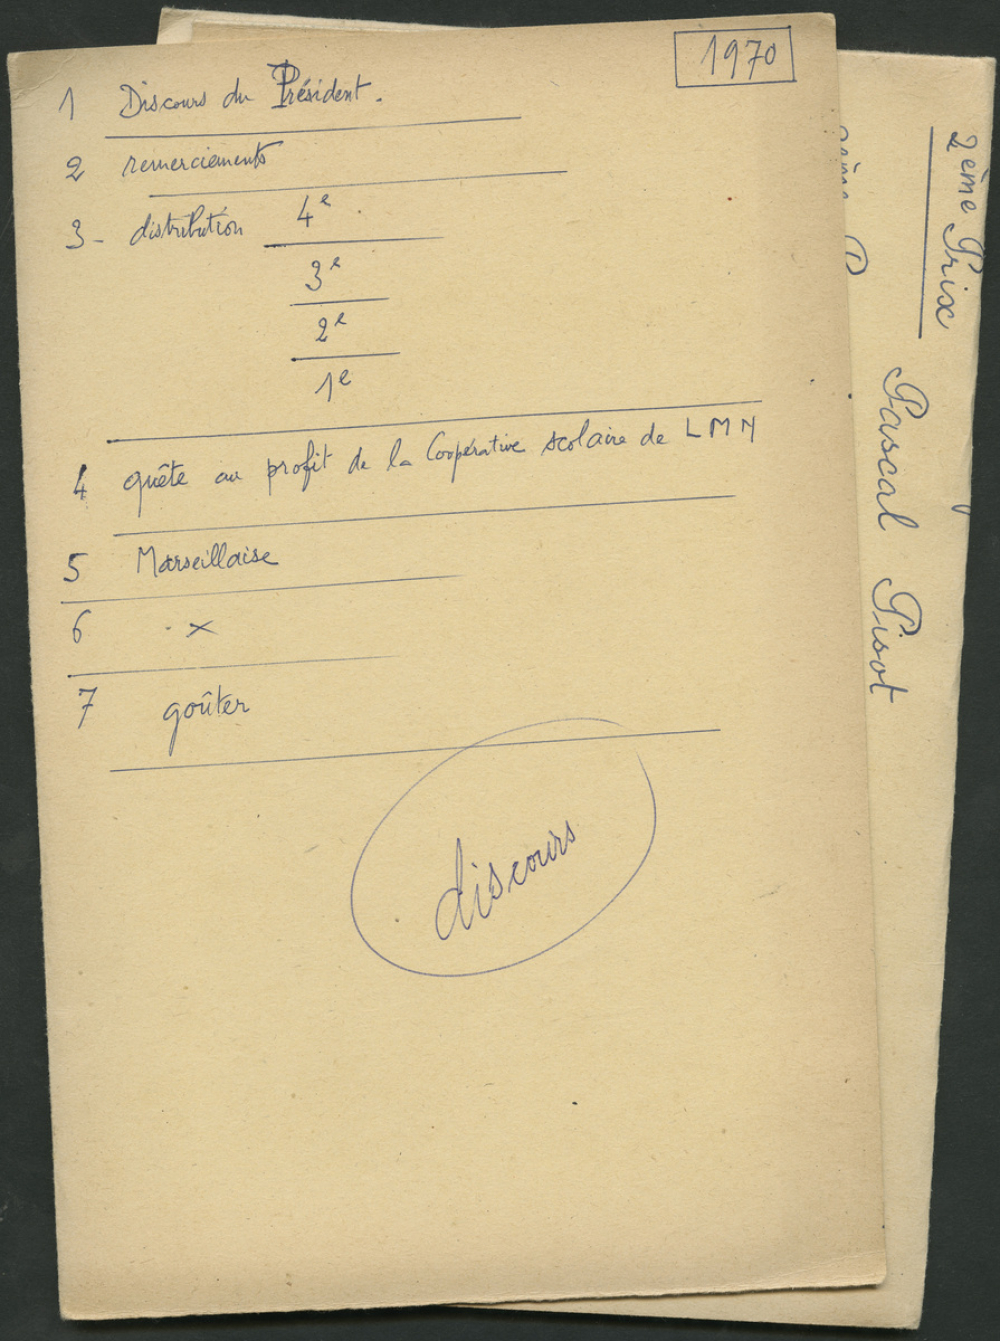 1970
1 Discours du Président.
2 remerciements
3 - distribution 4e
3e
2e
1e
4 quête au profit de la Coopérative scolaire de LMN
5 Marseillaise
6 x
7 goûter
discours
2ème Prix
Pascal Pisot